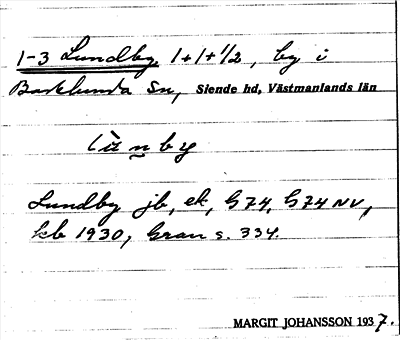 1-3 Lundby 1+1+1/2, by i
Barkarö Sn, Siende hd, Västmanlands län
Lundby jb, ek, G74, G74 NV,
kb 1930, Gran s. 334.
MARGIT JOHANSSON 1937.